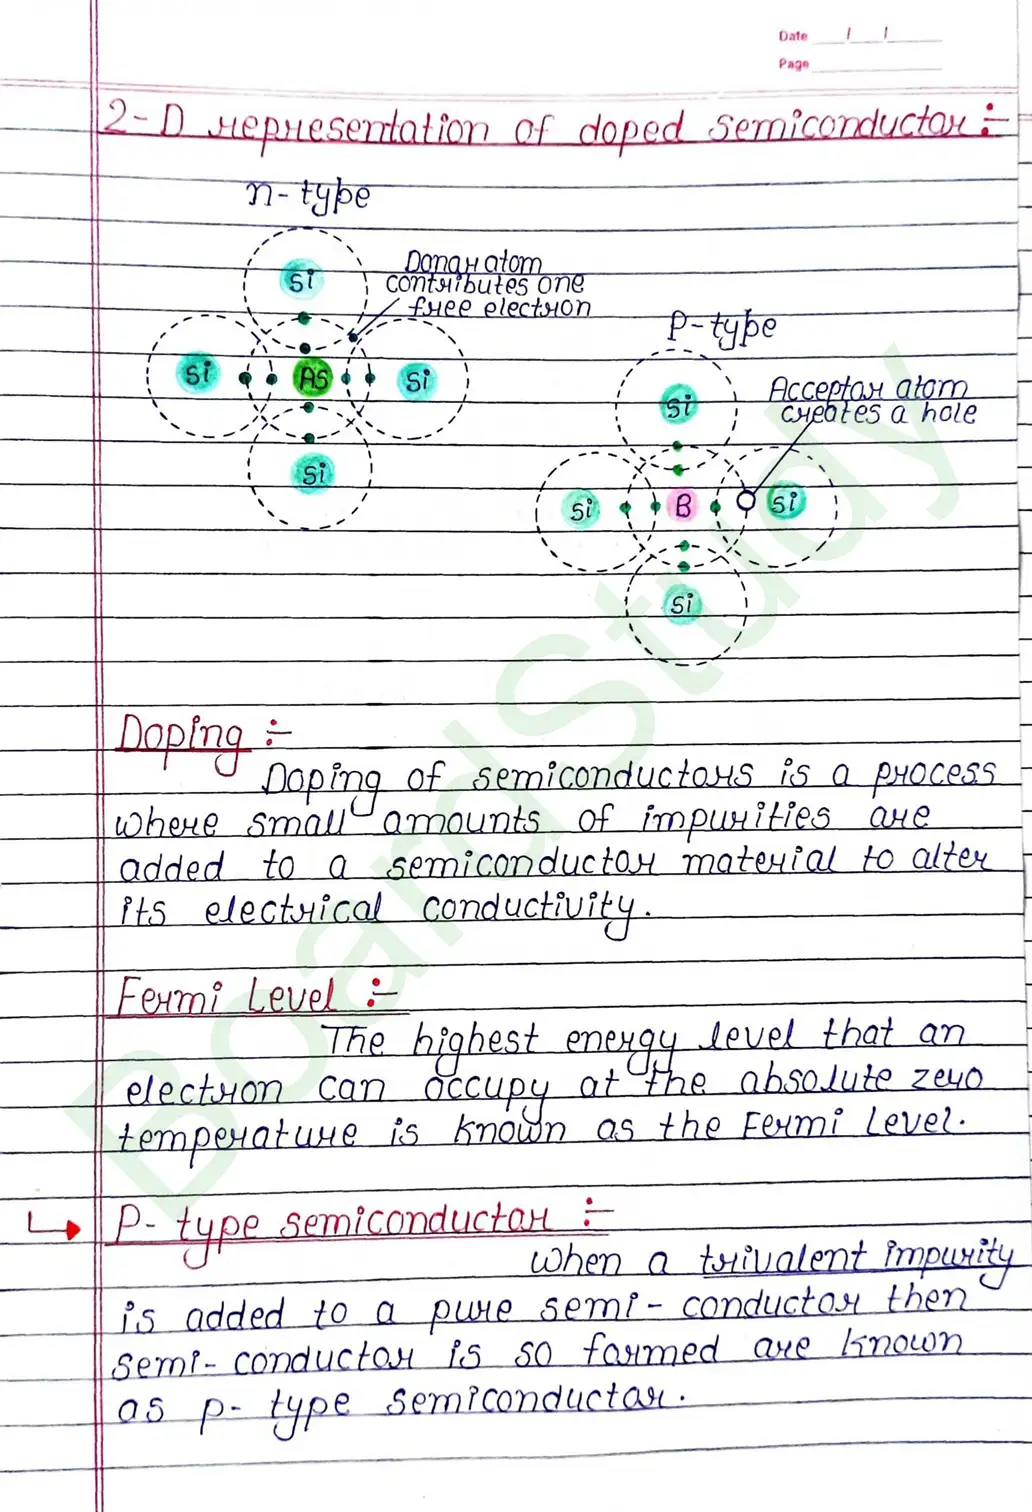 Date / /
Page
2-D representation of doped semiconductor :-
n-type
Si
Donar atom
contributes one
free electron
Si
AS
Si
Si
P-type
Si
Acceptor atom
creates a hole
Si
B
Si
Si
Doping :-
Doping of semiconductors is a process
where small amounts of impurities are
added to a semiconductor material to alter
its electrical conductivity.
Fermi Level :-
The highest energy level that an
electron can occupy at the absolute zero
temperature is known as the Fermi Level.
↳ P- type semiconductor :-
When a trivalent impurity
is added to a pure semi-conductor then
semi-conductor is so formed are known
as p- type semiconductor.
BoardStudy